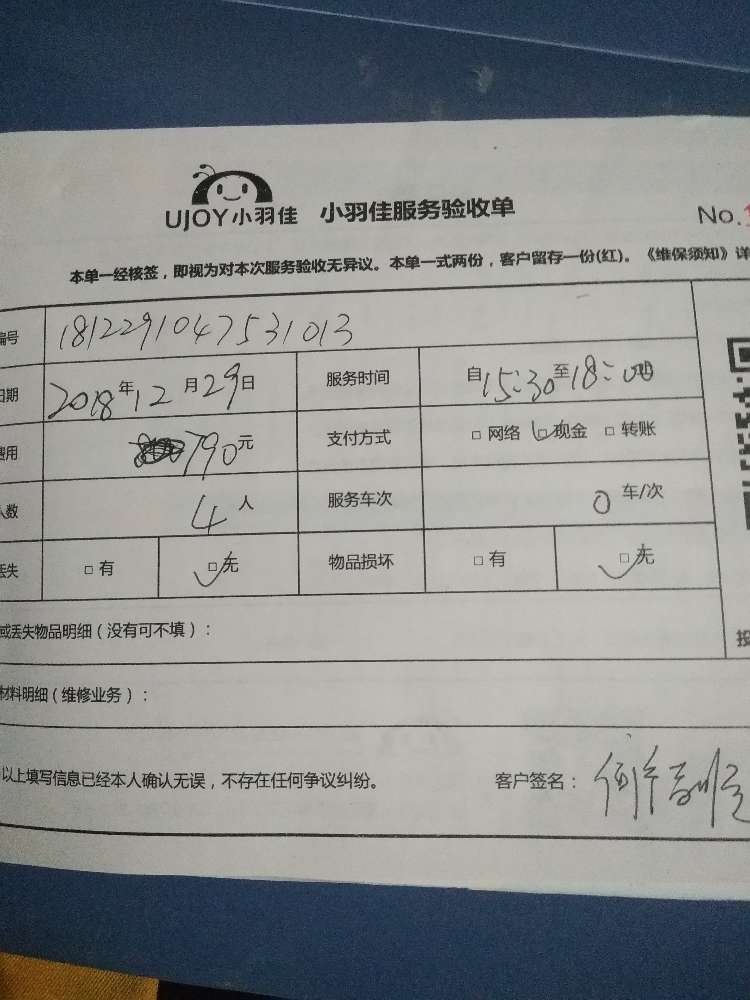 UJOY小羽佳 小羽佳服务验收单 No.1
本单一经核签，即视为对本次服务验收无异议。本单一式两份，客户留存一份(红)。《维保须知》详
编号 1812291047531013
日期 2018年12月29日 服务时间 自15:30至18:00
费用 790元 支付方式 □网络 □现金 □转账
人数 4人 服务车次 0车/次
丢失 □有 □无 物品损坏 □有 □无
或丢失物品明细（没有可不填）：
投
材料明细（维修业务）：
以上填写信息已经本人确认无误，不存在任何争议纠纷。 客户签名：